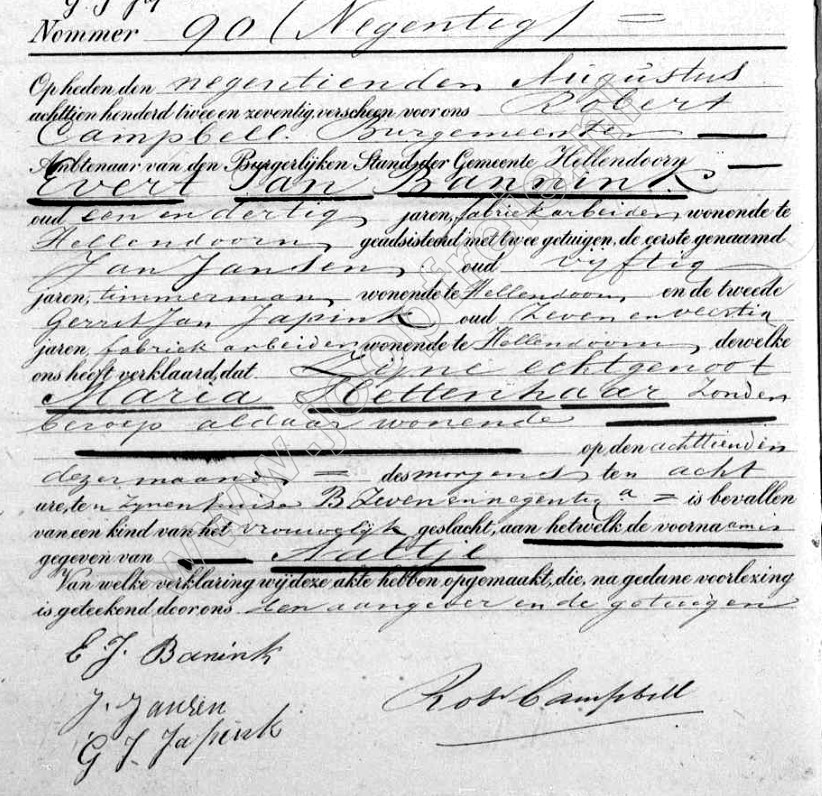 Nommer 90 (Negentig) =
Op heden den negentienden Augustus
achttien honderd twee en zeventig, verscheen voor ons Robert
Campbell. Burgemeester
Ambtenaar van den Burgerlijken Stand der Gemeente Hellendoorn
Evert Jan Bannink
oud een en dertig jaren, fabriekarbeider, wonende te
Hellendoorn, geadsisteerd met twee getuigen, de eerste genaamd
Jan Jansen, oud vijftig
jaren, timmerman, wonende te Hellendoorn, en de tweede
Gerrit Jan Japink oud zeven en veertig
jaren, fabriek arbeider wonende te Hellendoorn, dewelke
ons heeft verklaard, dat Zijne echtgenoot
Maria Hettenhaar zonder
beroep aldaar wonende
op den achttienden
dezer maand = des morgens ten acht
ure, te zijnen huize B zeven en negentig a = is bevallen
van een kind van het vrouwelijk geslacht, aan hetwelk de voornaamis
gegeven van Aaltje
Van welke verklaring wij deze akte hebben opgemaakt, die, na gedane voorlezing
is geteekend door ons den aangever en de getuigen
E J. Banink
J. Jansen
G J. Japink
Rob Campbell